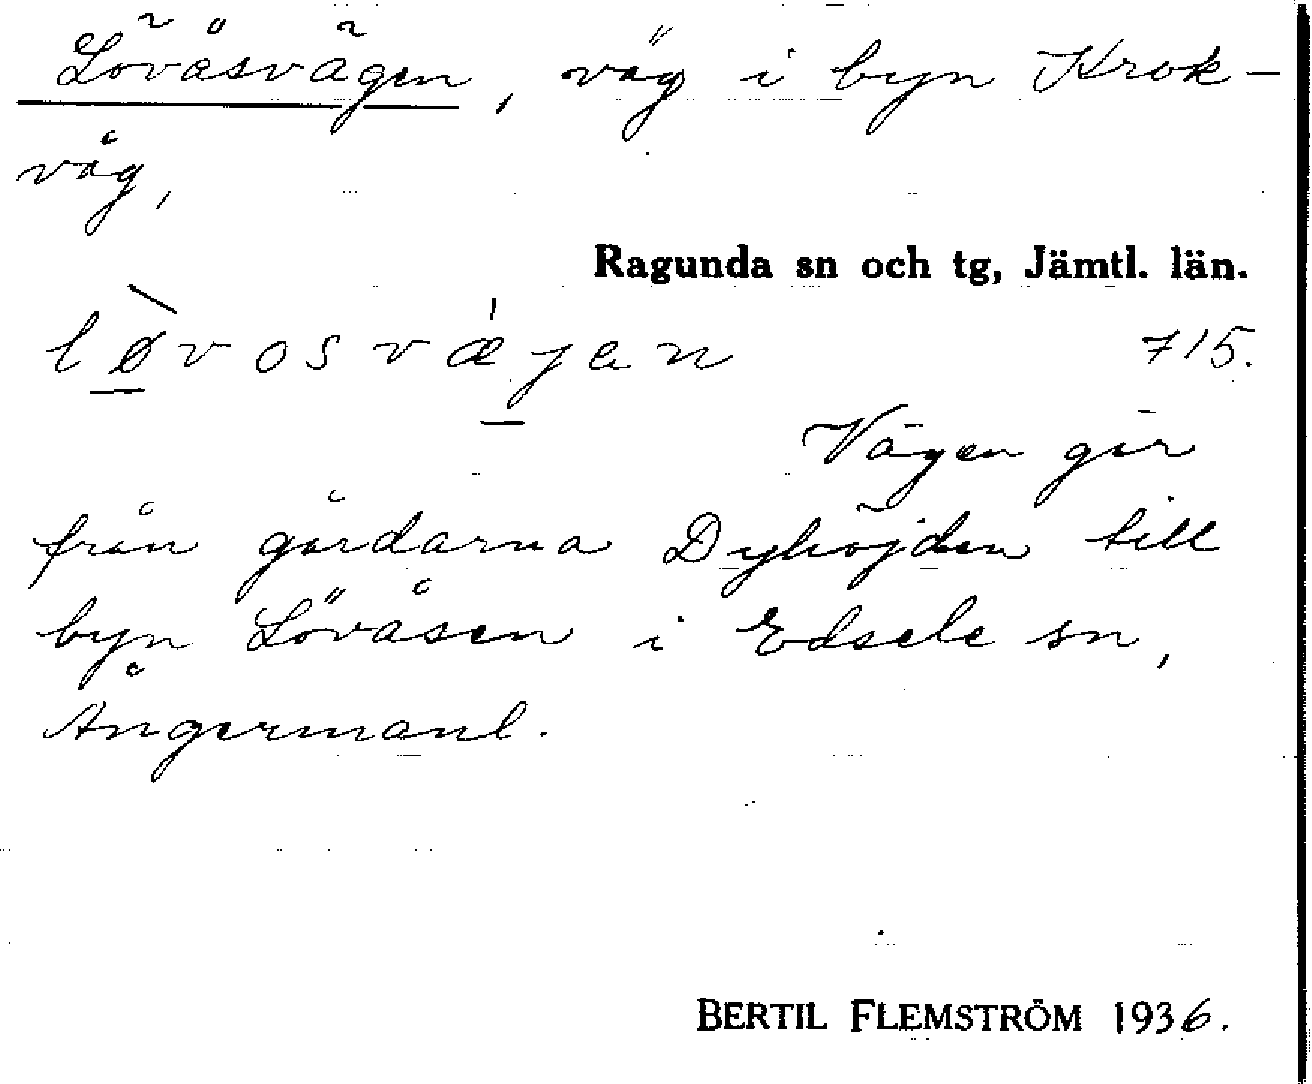 Lövåsvägen, väg i byn Krok-
våg,
Ragunda sn och tg, Jämtl. län.
lø̀vosvǽjen 715.
Vägen går
från gårdarna Dyhöjden till
byn Lövåsen i Edsele sn,
Ångermanl.
BERTIL FLEMSTRÖM 1936.